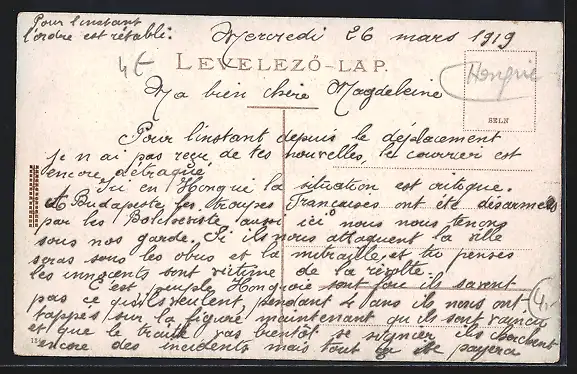 Pour l'instant
l'ordre est rétabli.
Mercredi 26 mars 1919
4€
LEVELEZŐ-LAP.
Hongrie
Ma bien chère Magdeleine
SELN
Pour l'instant depuis le déplacement
je n'ai pas reçu de tes nouvelles, le courrier est
encore détraqué.
Ici en Hongrie la situation est critique.
A Budapeste les troupes Francaises ont été désarmées
par les Bolcheviste aussi ici nous nous tenons
sous nos garde. Si ils nous attaquent la ville
seras sous les obus et la mitraille, et tu penses
les innocents sont victime de la révolte.
C'est peuple Hongrois sont fou ils savent
pas ce qu'ils veulent, pendant 4 ans ils nous ont
tappés sur la figure maintenant qu'ils sont vaincu
et que le traité vas bientôt se signier ils cherchent
encore des incidents mais tout se payera
4,-